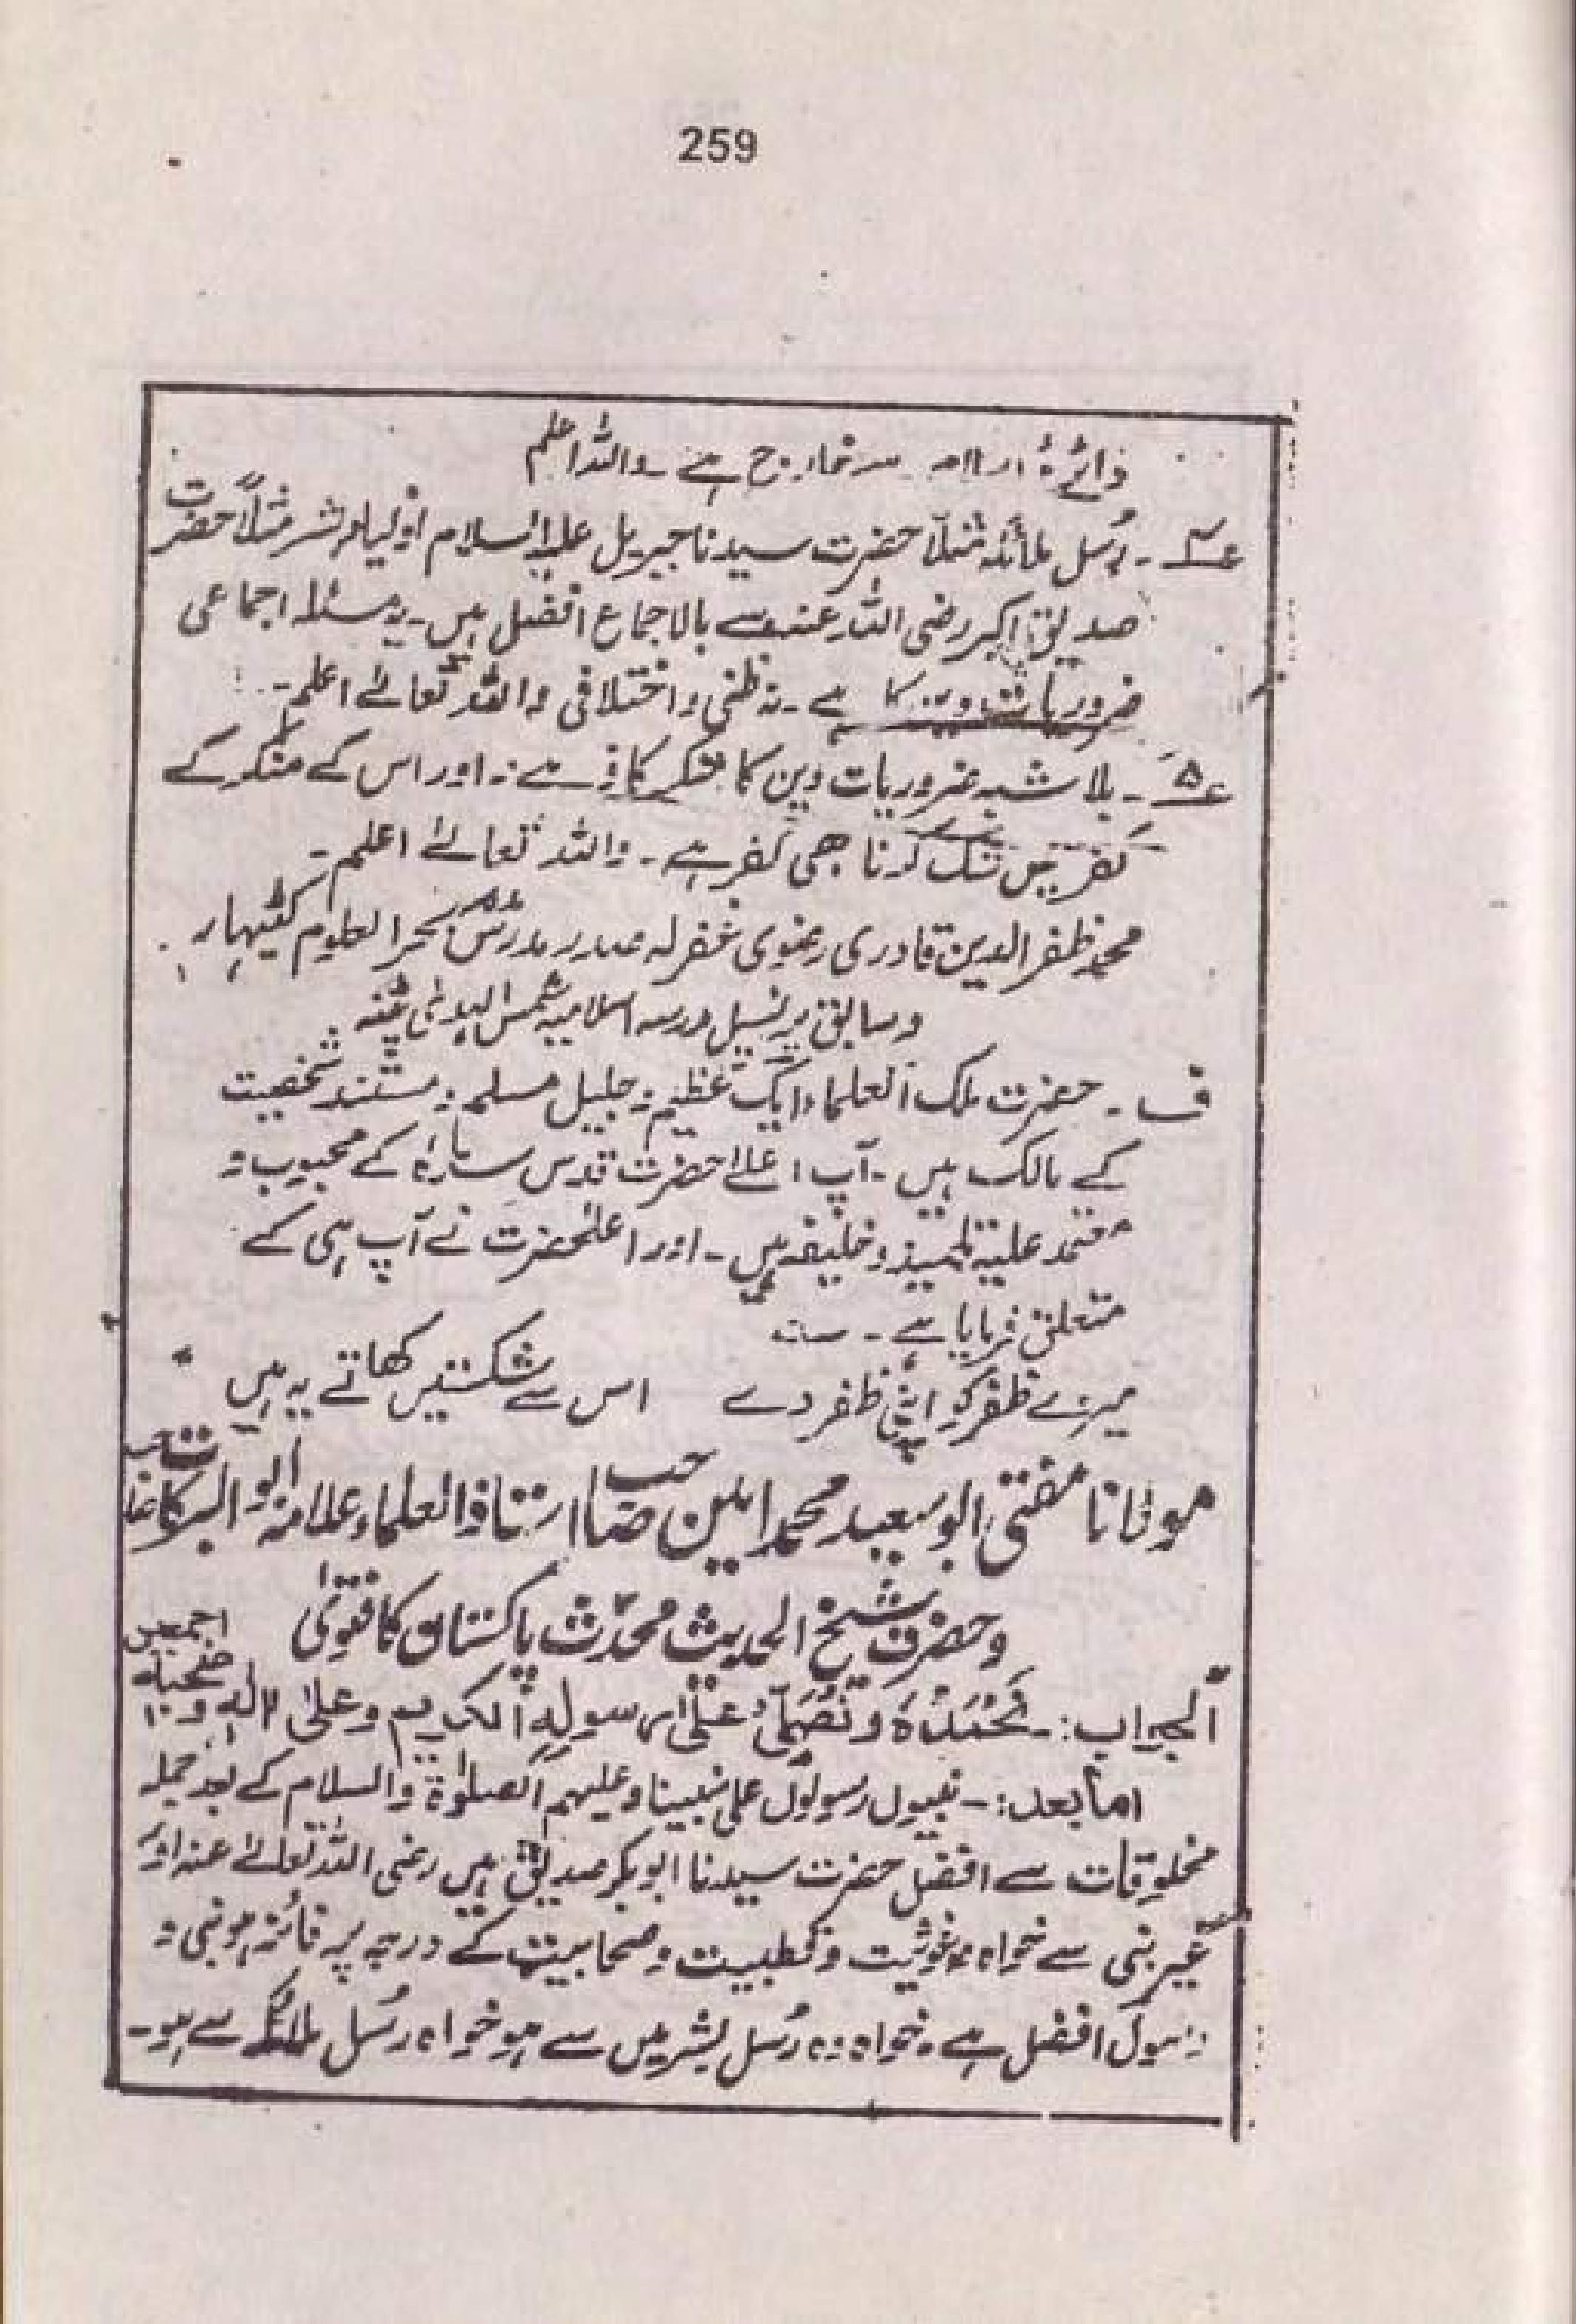 259
دائرۂ اسلام سے خارج ہے ۔ واللہ اعلم
ع۴ ۔ رُسل ملائکہ مثلاً حضرت سیدنا جبریل علیہ السلام اولیاء بشر مثلاً حضرت
صدیق اکبر رضی اللہ عنہ سے بالاجماع افضل ہیں ۔ یہ مسئلہ اجماعی
ضروریات دین کا ہے ۔ نہ ظنی و اختلافی واللہ تعالےٰ اعلم ۔
ع۵ ۔ بلا شبہ ضروریات دین کا منکر کافر ہے ۔ اور اس کے منکر کے
کفر میں شک کرنا بھی کفر ہے ۔ واللہ تعالےٰ اعلم ۔
محمد ظفر الدین قادری رضوی غفرلہ صدر مدرس بحر العلوم کٹیہار
و سابق پرنسپل مدرسہ اسلامیہ شمس الہدیٰ پٹنہ
ف ۔ حضرت ملک العلماء ایک عظیم و جلیل مسلم و مستند شخصیت
کے مالک ہیں ۔ آپ اعلےٰ حضرت قدس سرہٗ کے محبوب و
معتمد علیہ تلمیذ و خلیفہ ہیں ۔ اور اعلٰحضرت نے آپ ہی کے
متعلق فرمایا ہے ۔
میرے ظفر کو اپنی ظفر دے اس سے شکستیں کھاتے یہ ہیں
مولانا مفتی ابو سعید محمد امین صاحب استاذ العلماء علامہ ابو البرکات صاحب
و حضرت شیخ الحدیث محدّث پاکستان کا فتویٰ
الجواب :۔ نَحْمَدُہٗ وَ نُصَلِّیْ عَلٰی رسولِہِ الکریم وعلیٰ اٰلہٖ و صحبہٖ اجمعین
اما بعد :۔ نبیوں رسولوں علی نبینا وعلیہم الصلوٰۃ والسلام کے بعد جملہ
مخلوقات سے افضل حضرت سیدنا ابوبکر صدیق ہیں رضی اللہ تعالےٰ عنہ اور
غیر نبی سے خواہ وہ غوثیت و قطبیت و صحابیت کے درجہ پر فائز ہو نبی و
رسول افضل ہے ۔ خواہ وہ رُسل بشر میں سے ہو خواہ رُسل ملائکہ سے ہو ۔